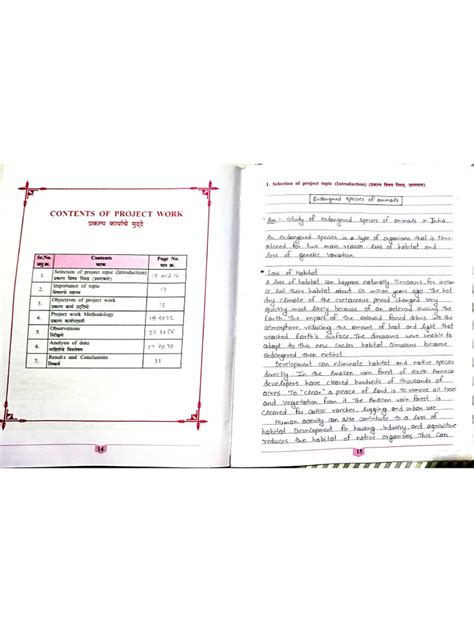 CONTENTS OF PROJECT WORK
प्रकल्प कार्याचे मुद्दे
Sr.No. Contents Page No.
अनु.क्र. घटक पान क्र.
1. Selection of project topic (Introduction) 15 and 16
प्रकल्प विषय निवड (प्रस्तावना)
2. Importance of topic 17
विषयाचे महत्त्व
3. Objectives of project work 18
प्रकल्प कार्य उद्दिष्टे
4. Project work Methodology 19 to 22
प्रकल्प कार्यपद्धती
5. Observations 23 to 26
निरीक्षणे
6. Analysis of data 27 to 30
माहितीचे विश्लेषण
7. Results and Conclusions 31
निष्कर्ष
14
1. Selection of project topic (Introduction) (प्रकल्प विषय निवड, प्रस्तावना)
Endangered species of animals
Aim :- Study of endangered species of animals in India.
An Endangered species is a type of organisms that is threa
atened for two main reason - loss of habitat and
loss of genetic variation
Loss of Habitat
A loss of habitat can happens naturally. Dinosaurs for instan-
ce lost their habitat about 65 million years ago. The hot,
dry climate of the cretaceous period changed very
quickly most likely because of an asteroid striking the
Earth. The impact of the asteroid forced debris into the
atmosphere, reducing the amount of heat and light that
reached Earth's surface. The dinosaurs were unable to
adapt to this new cooler habitat. Dinosaurs became
endangered then extinct
Development can eliminate habitat and native species
directly. In the Amazon rain forest of South America
developers have cleared hundreds of thousands of
acres. To "clear" a peace of land is to remove all trees
and vegetation from it. The Amazon rain forest is
cleared for cattle ranches, logging and urban use
Human activity can also contribute to a loss of
habitat. Development for housing, industry, and agriculture
reduces the habitat of native organisms. This can
15